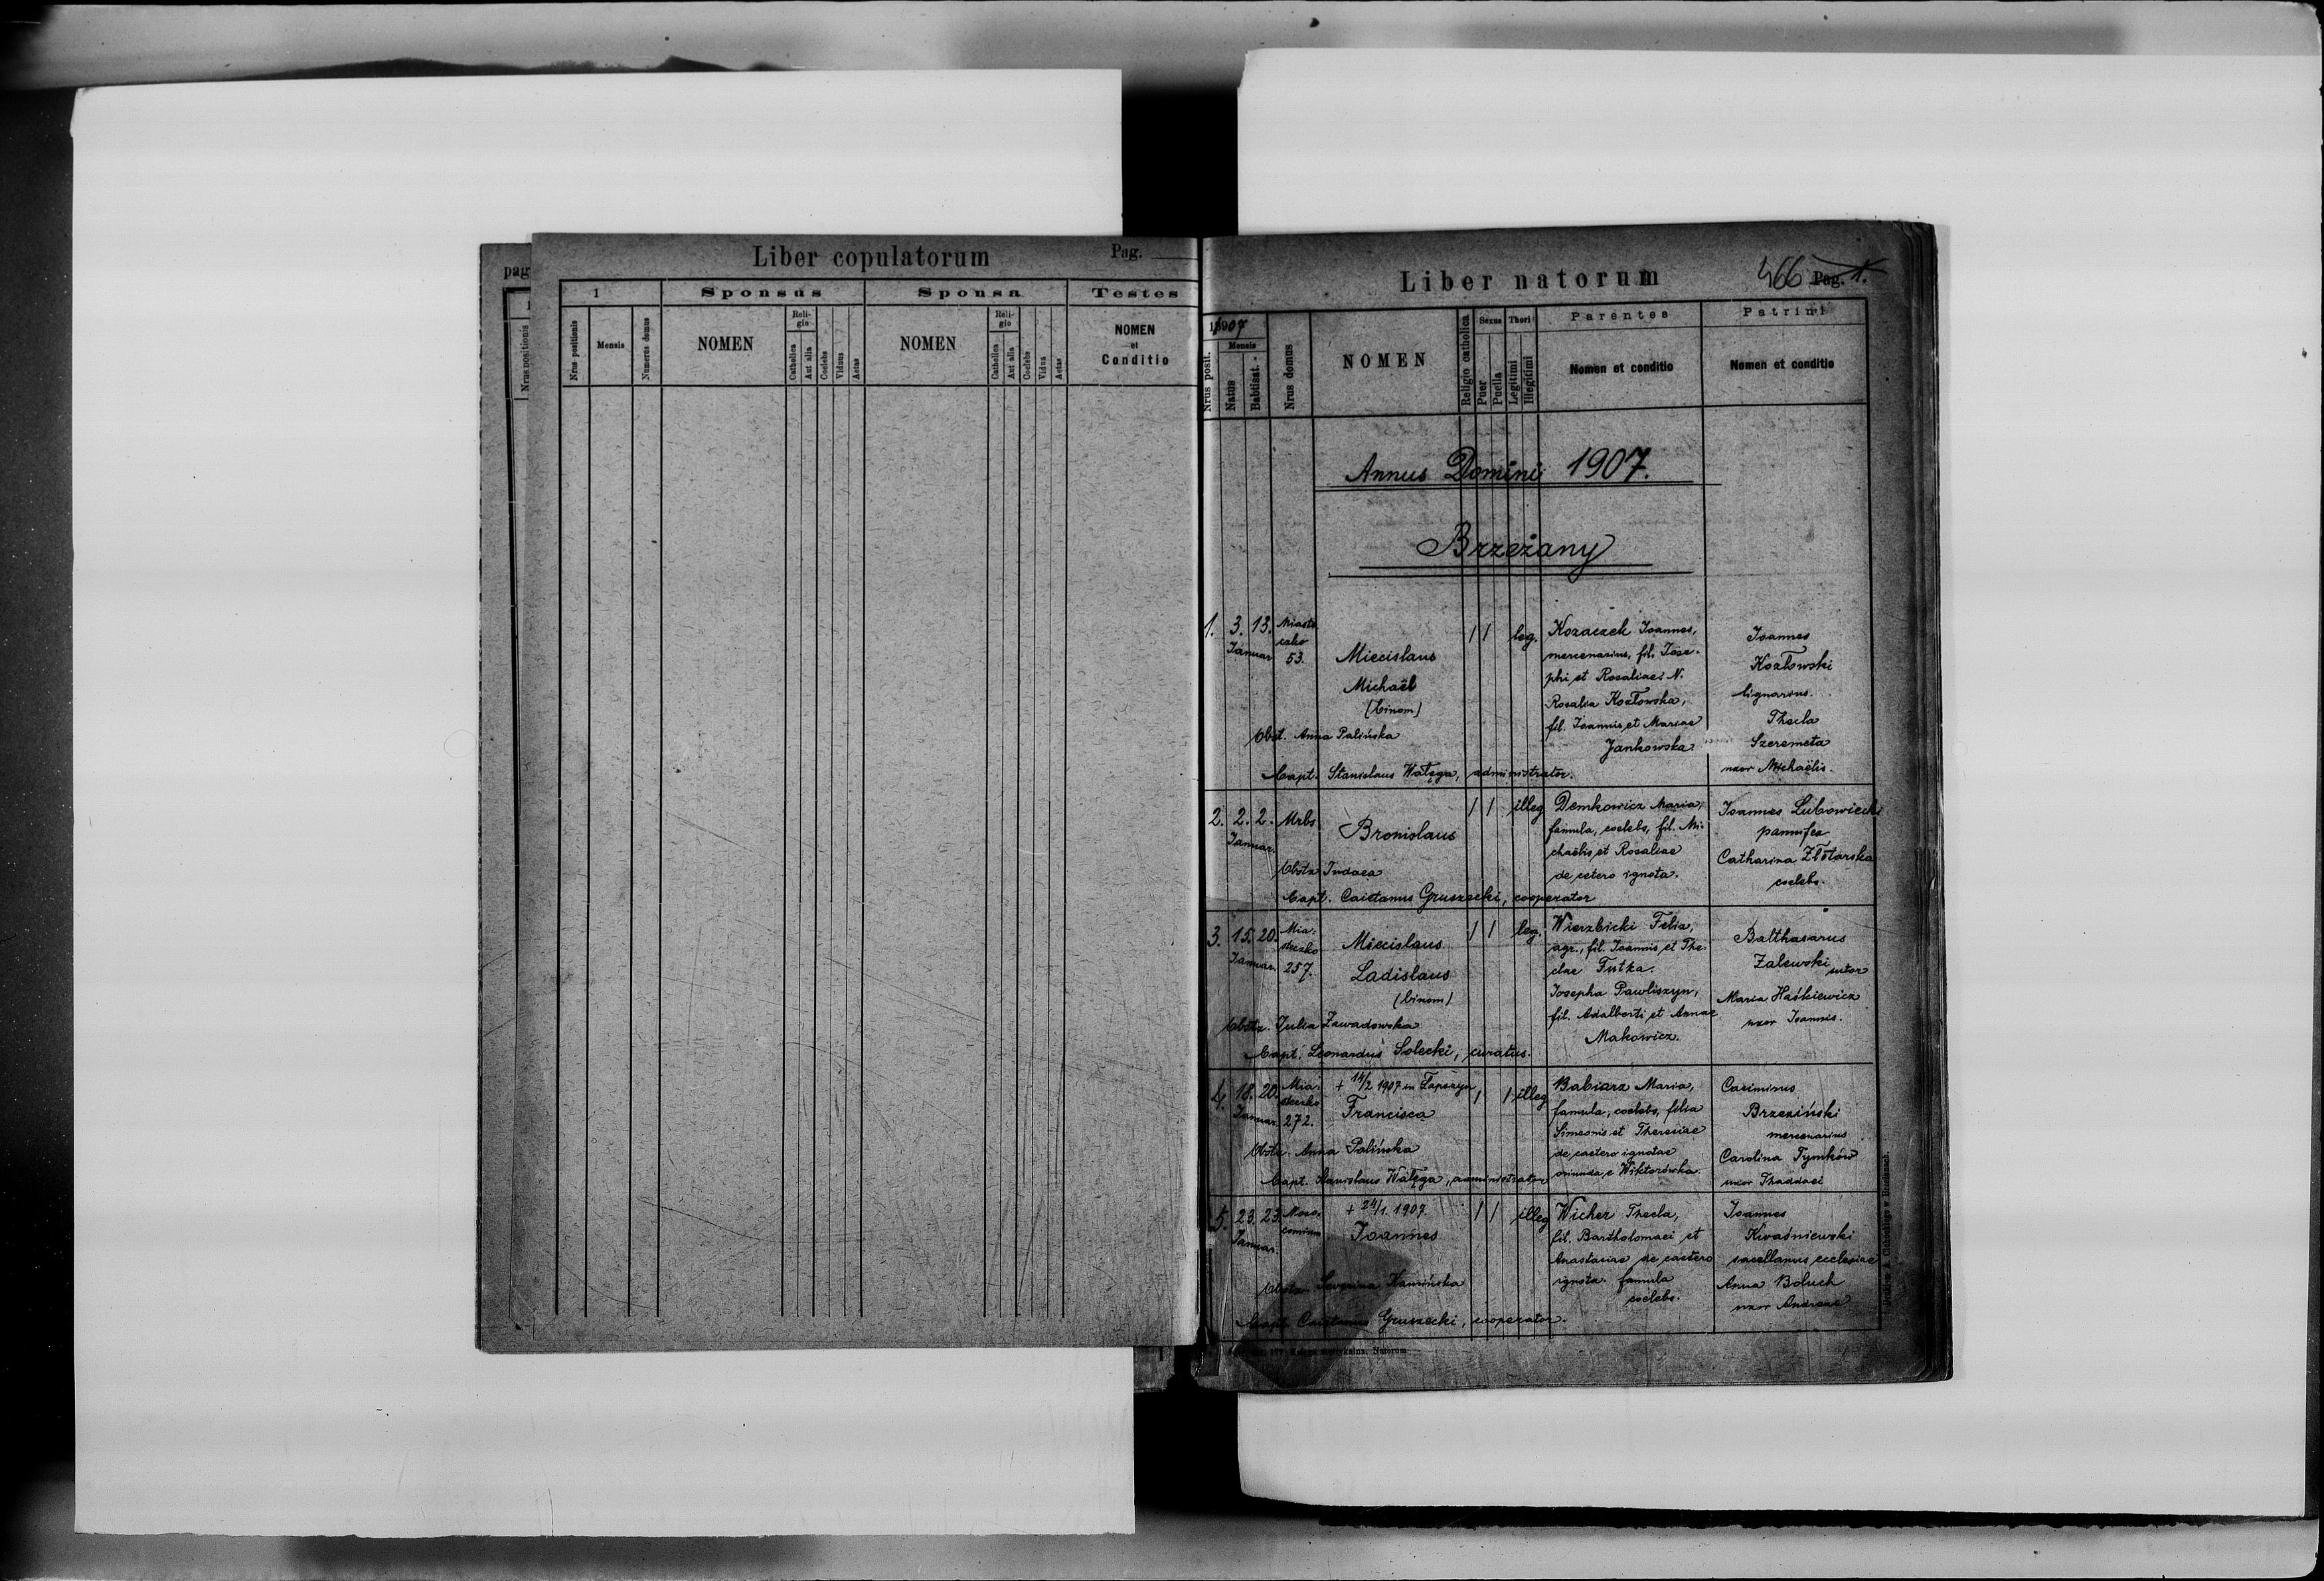 pag
1
Nrus positionis
Liber copulatorum
Pag.
1
Sponsus
Sponsa
Testes
Nrus positionis
Mensis
Numerus domus
NOMEN
Religio
Catholica
Aut alia
Coelebs
Viduus
Aetas
NOMEN
Religio
Catholica
Aut alia
Coelebs
Vidua
Aetas
NOMEN
et
Conditio
Liber natorum
466 Pag. 1.
1907
Mensis
Nrus posit.
Natus
Babtisat.
Nrus domus
NOMEN
Religio catholica
Sexus
Puer
Puella
Thori
Legitimi
Illegitimi
Parentes
Nomen et conditio
Patrini
Nomen et conditio
Annus Domini 1907.
Brzeżany
1.
3. 13.
Januar
Miaste
czko
53.
Miecislaus
Michaël
(binom)
1 1 leg.
Kozaczek Joannes,
mercenarius, fil. Jose-
phi et Rosaliae N.
Rosalia Kozłowska,
fil. Joannis et Mariae
Jankowska.
Joannes
Kozłowski
lignarius.
Thecla
Szeremeta
uxor Michaëlis.
Obst. Anna Palińska
Bapt. Stanislaus Wałęga, administrator.
2.
2. 2.
Januar.
Urbs
Bronislaus
1 1 illeg
Demkowicz Maria,
famula, coelebs, fil. Mi-
chaëlis et Rosaliae
de cetero ignota.
Joannes Lubowiecki
pannifex
Catharina Złotarska
coelebs.
Obstx Judaea
Bapt. Caietanus Gruszecki, cooperator
3.
15. 20.
Januar.
Mia-
steczko
257.
Miecislaus
Ladislaus
(binom)
1 1 leg.
Wierzbicki Felix,
agr., fil. Joannis et The-
clae Futka.
Josepha Pawliszyn,
fil. Adalberti et Annae
Makowicz.
Balthasarus
Zalewski sutor
Maria Haśkiewicz
uxor Joannis.
Obstx. Julia Zawadowska
Bapt. Leonardus Solecki, curatus.
4.
18. 20.
Januar.
Mia-
steczko
272.
+ 14/2 1907 in Łapszyn
Francisca
1 1 illeg
Babiarz Maria,
famula, coelebs, filia
Simeonis et Theresiae
de caetero ignotae
oriunda e Wiktorówka.
Casimirus
Brzeziński
mercenarius
Carolina Tymków
uxor Thaddaei
Obstx. Anna Palińska
Bapt. Stanislaus Wałęga, administrator
5.
23. 23.
Januar.
Noso-
comium
+ 24/1. 1907.
Joannes
1 1 illeg
Wicher Thecla,
fil. Bartholomaei et
Anastasiae de caetero
ignota. famula
coelebs.
Joannes
Kwaśniewski
sacellanus ecclesiae
Anna Boluch
uxor Andreae
Obstx. Severina Kamińska
Bapt. Caietanus Gruszecki, cooperator.
Natorum